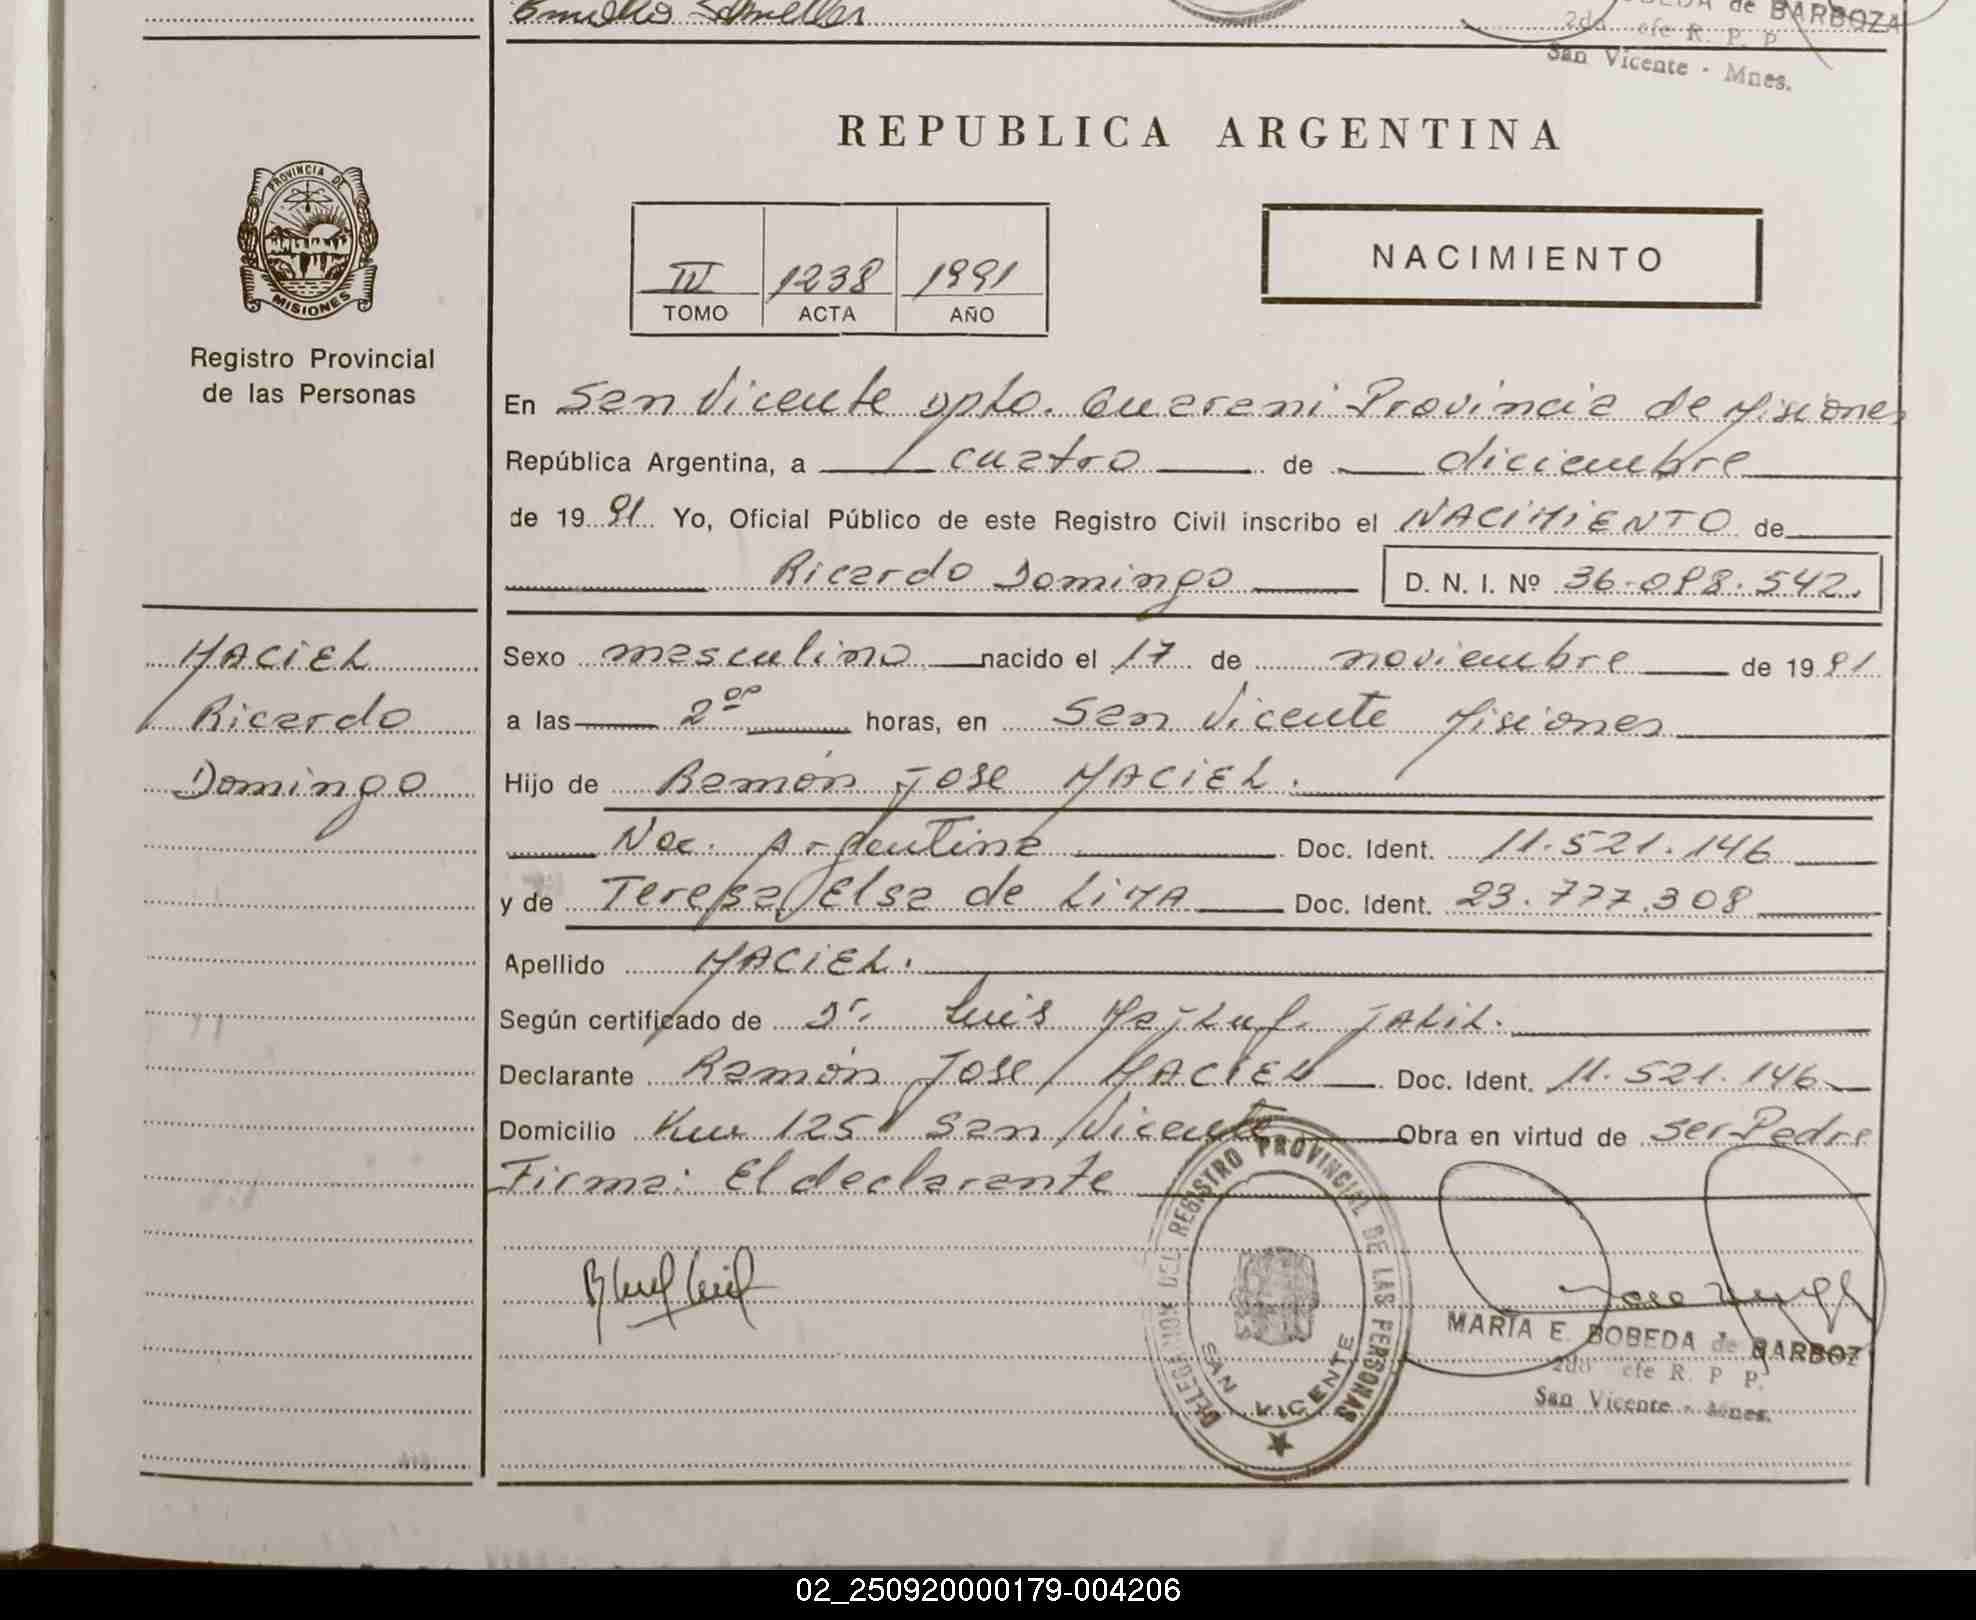 Emilio
de BARBOZA
2do efe R. P. P
San Vicente - Mnes.
REPUBLICA ARGENTINA
PROVINCIA DE
MISIONES
Registro Provincial
de las Personas
IV 1238 1991
TOMO ACTA AÑO
NACIMIENTO
En San Vicente Dpto. Guarani Provincia de Misiones
República Argentina, a cuatro de diciembre
de 1991 Yo, Oficial Público de este Registro Civil inscribo el NACIMIENTO de
Ricardo Domingo D. N. I. Nº 36.098.542.
MACIEL
Ricardo
Domingo
Sexo masculino nacido el 17 de noviembre de 1991
a las 2 00 horas, en San Vicente Misiones
Hijo de Ramón Jose MACIEL.
Nac. Argentina Doc. Ident. 11.521.146
y de Teresa Elsa de LIMA Doc. Ident. 23.777.308
Apellido MACIEL.
Según certificado de Dr. Luis Majluf JALIL.
Declarante Ramón Jose MACIEL Doc. Ident. 11.521.146
Domicilio Km 125 San Vicente Obra en virtud de ser Padre
Firma: El declarante
DELEGACION DEL REGISTRO PROVINCIAL DE LAS PERSONAS
SAN VICENTE
MARIA E. BOBEDA de BARBOZ
2do efe R. P P.
San Vicente - Mnes.
02_250920000179-004206